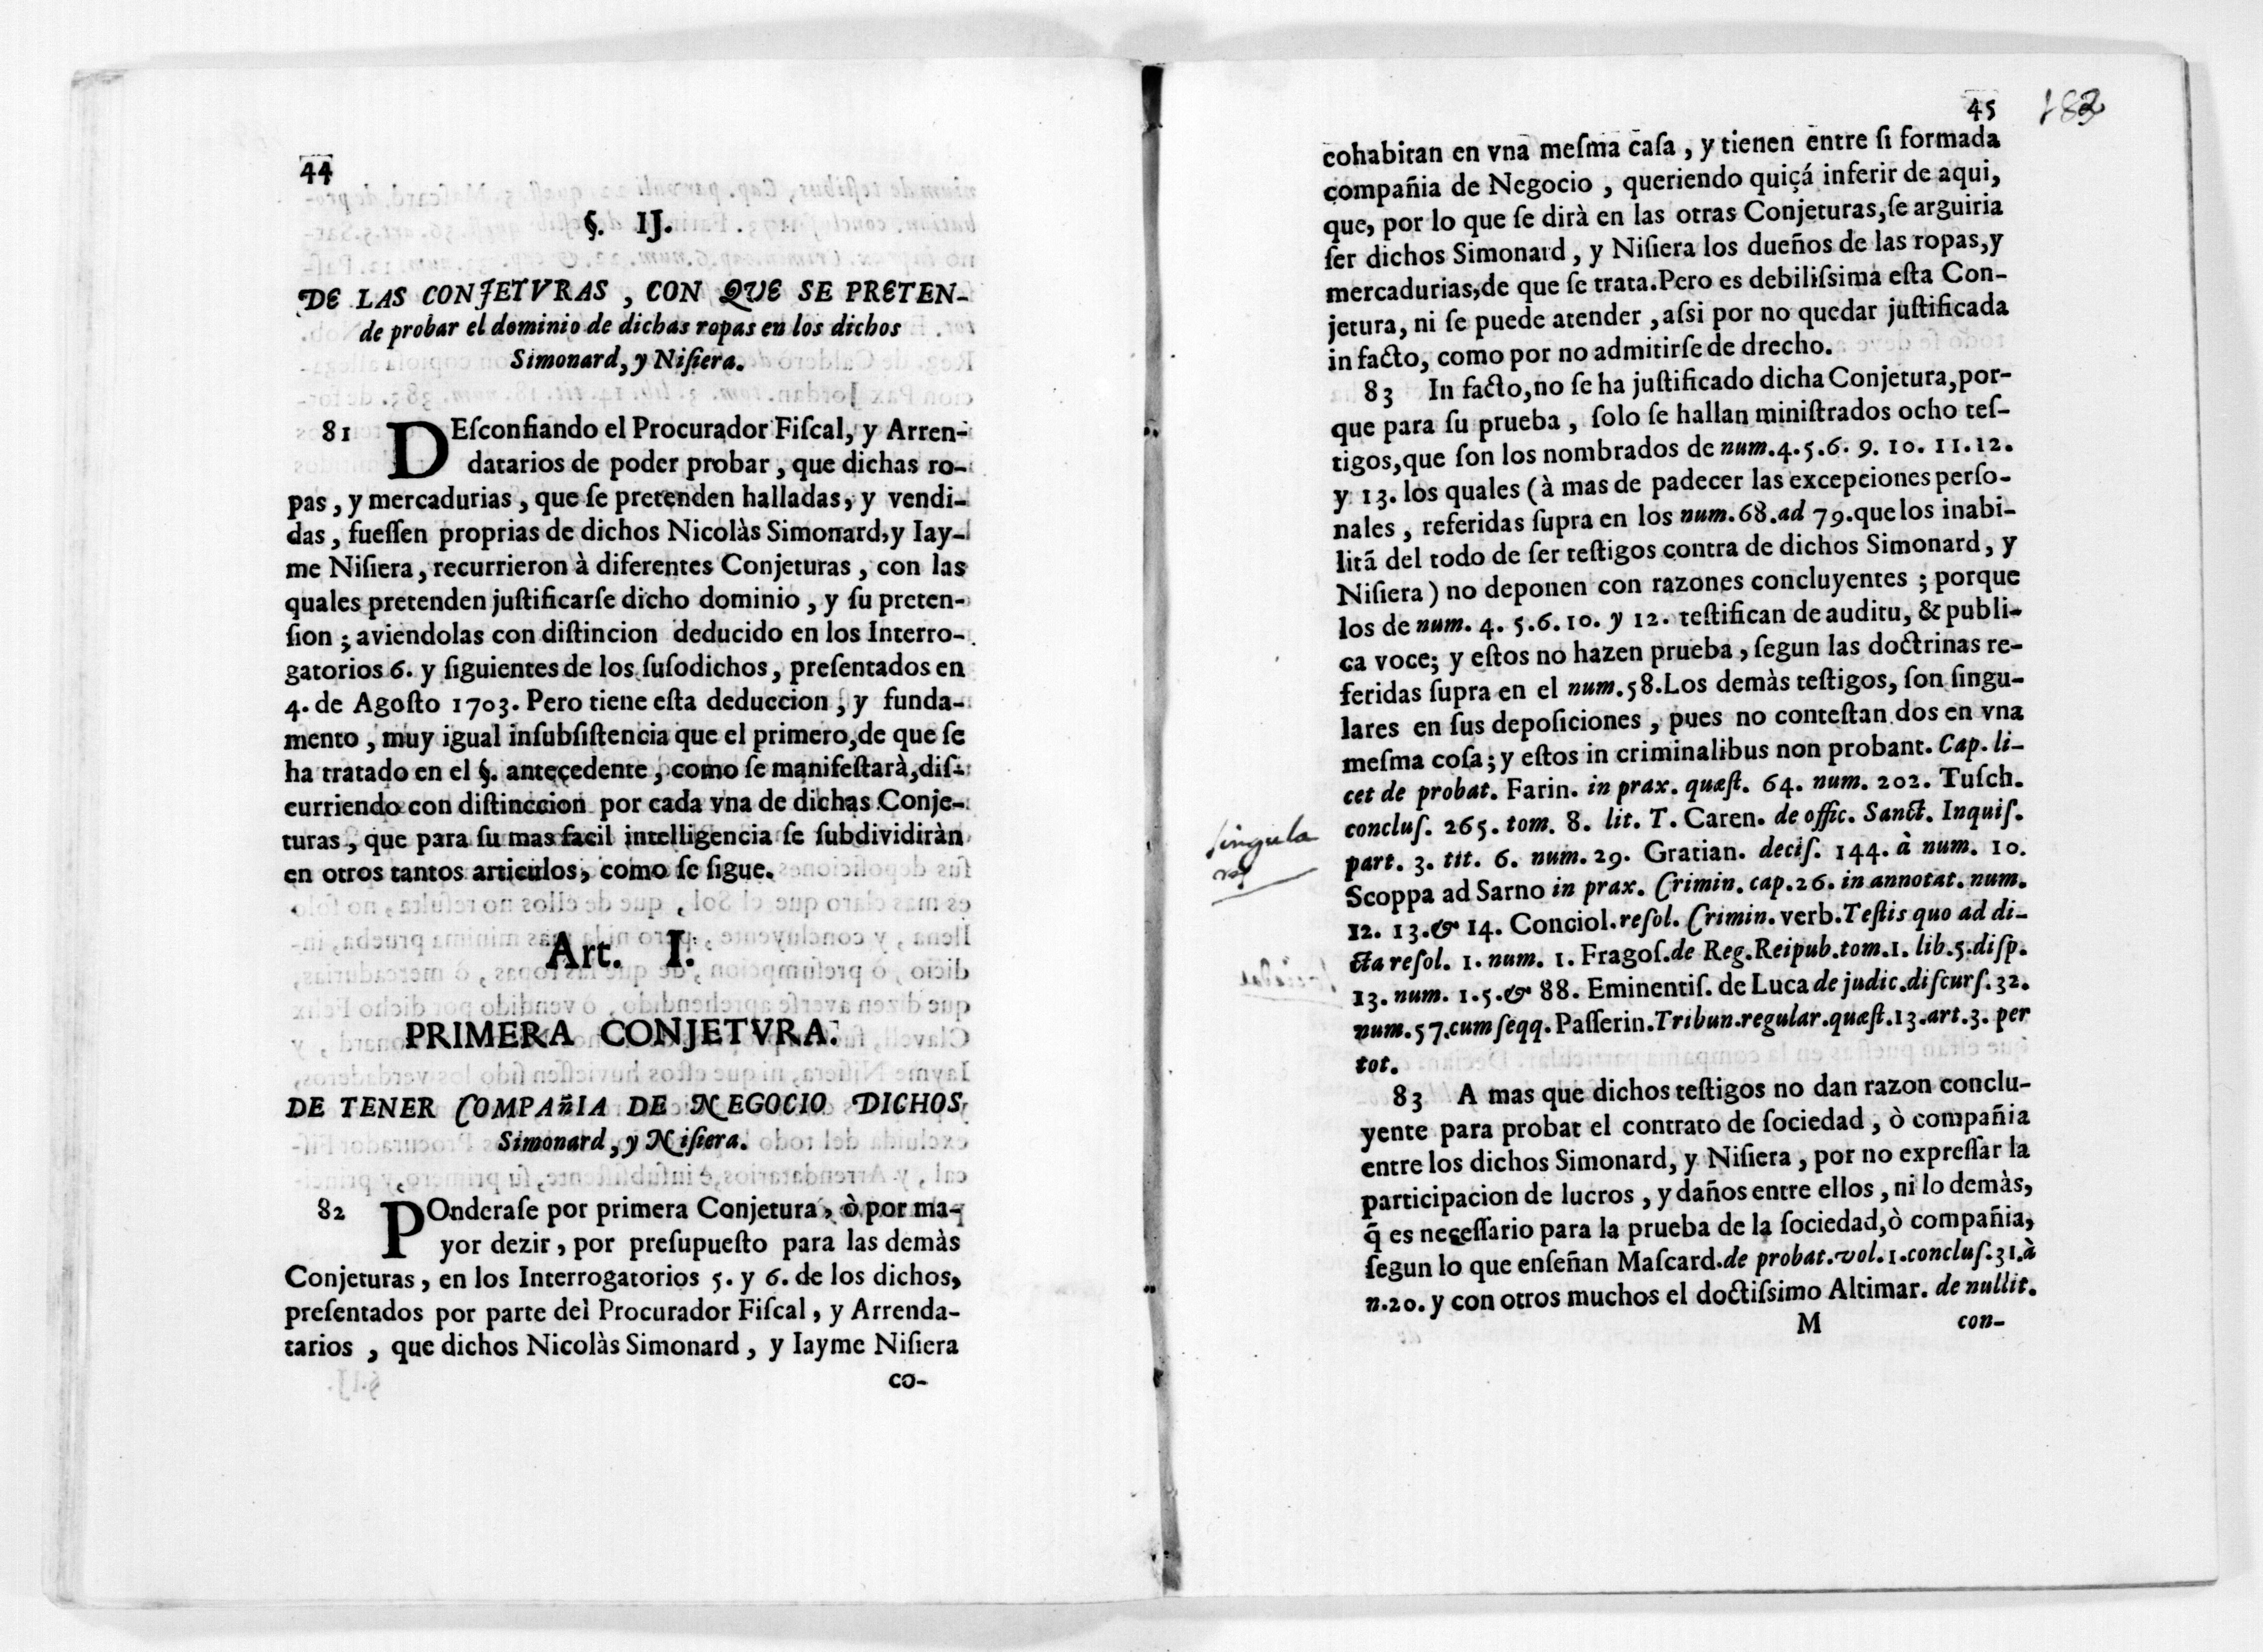 44
§. IJ.
DE LAS CONJETVRAS, CON QVE SE PRETEN-
de probar el dominio de dichas ropas en los dichos
Simonard, y Nisiera.
81 DEsconfiando el Procurador Fiscal, y Arren-
datarios de poder probar, que dichas ro-
pas, y mercadurias, que se pretenden halladas, y vendi-
das, fuessen proprias de dichos Nicolàs Simonard, y Iay-
me Nisiera, recurrieron à diferentes Conjeturas, con las
quales pretenden justificarse dicho dominio, y su preten-
sion; aviendolas con distincion deducido en los Interro-
gatorios 6. y siguientes de los susodichos, presentados en
4. de Agosto 1703. Pero tiene esta deduccion, y funda-
mento, muy igual insubsistencia que el primero, de que se
ha tratado en el §. anteçedente, como se manifestarà, dis-
curriendo con distinccion por cada vna de dichas Conje-
turas, que para su mas facil intelligencia se subdividiràn
en otros tantos articulos, como se sigue.
Art. I.
PRIMERA CONJETVRA.
DE TENER COMPAñIA DE NEGOCIO DICHOS
Simonard, y Nisiera.
82 POnderase por primera Conjetura, ò por ma-
yor dezir, por presupuesto para las demàs
Conjeturas, en los Interrogatorios 5. y 6. de los dichos,
presentados por parte del Procurador Fiscal, y Arrenda-
tarios, que dichos Nicolàs Simonard, y Iayme Nisiera
co-
45
183
cohabitan en vna mesma casa, y tienen entre si formada
compañia de Negocio, queriendo quiçá inferir de aqui,
que, por lo que se dirà en las otras Conjeturas, se arguiria
ser dichos Simonard, y Nisiera los dueños de las ropas, y
mercadurias, de que se trata. Pero es debilissima esta Con-
jetura, ni se puede atender, assi por no quedar justificada
in facto, como por no admitirse de drecho.
83 In facto, no se ha justificado dicha Conjetura, por-
que para su prueba, solo se hallan ministrados ocho tes-
tigos, que son los nombrados de num. 4. 5. 6. 9. 10. 11. 12.
y 13. los quales (à mas de padecer las excepciones perso-
nales, referidas supra en los num. 68. ad 79. que los inabi-
litã del todo de ser testigos contra de dichos Simonard, y
Nisiera) no deponen con razones concluyentes; porque
los de num. 4. 5. 6. 10. y 12. testifican de auditu, & publi-
ca voce; y estos no hazen prueba, segun las doctrinas re-
feridas supra en el num. 58. Los demàs testigos, son singu-
lares en sus deposiciones, pues no contestan dos en vna
mesma cosa; y estos in criminalibus non probant. Cap. li-
cet de probat. Farin. in prax. quæst. 64. num. 202. Tusch.
conclus. 265. tom. 8. lit. T. Caren. de offic. Sanct. Inquis.
part. 3. tit. 6. num. 29. Gratian. decis. 144. à num. 10.
Scoppa ad Sarno in prax. Crimin. cap. 26. in annotat. num.
12. 13. & 14. Conciol. resol. Crimin. verb. Testis quo ad di-
cta resol. 1. num. 1. Fragos. de Reg. Reipub. tom. 1. lib. 5. disp.
13. num. 1. 5. & 88. Eminentis. de Luca de judic. discurs. 32.
num. 57. cum seqq. Passerin. Tribun. regular. quæst. 13. art. 3. per
tot.
83 A mas que dichos testigos no dan razon conclu-
yente para probat el contrato de sociedad, ò compañia
entre los dichos Simonard, y Nisiera, por no expressar la
participacion de lucros, y daños entre ellos, ni lo demàs,
q̃ es necessario para la prueba de la sociedad, ò compañia,
segun lo que enseñan Mascard. de probat. vol. 1. conclus. 31. à
n. 20. y con otros muchos el doctissimo Altimar. de nullit.
M con-
singula